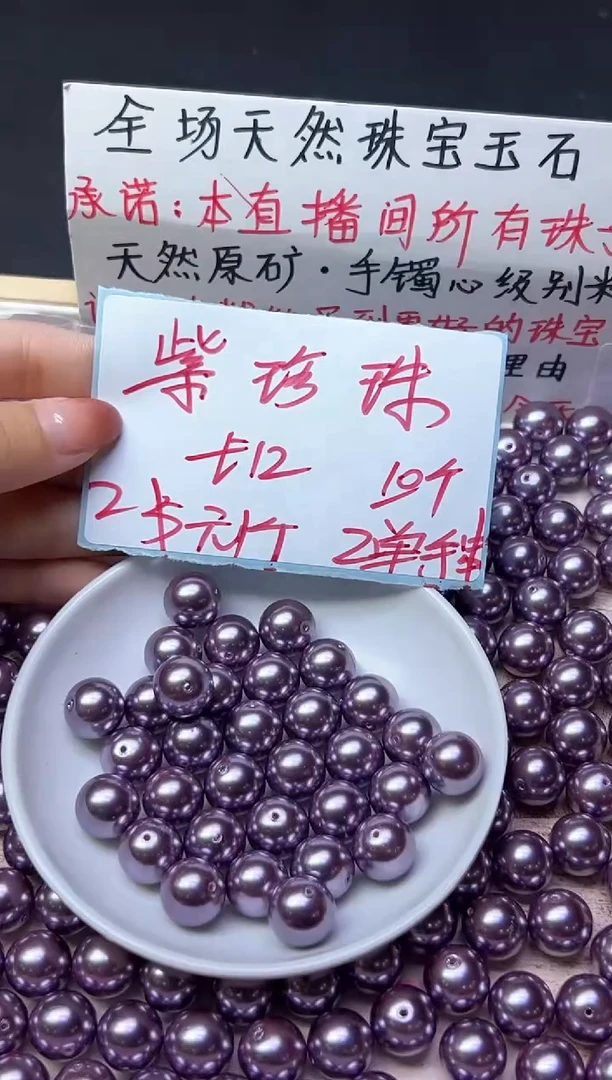 全场天然珠宝玉石
承诺:本直播间所有珠
天然原矿·手镯心级别
的珠宝
理由
紫珍珠
卡12 10个
2 元1个 2单手串